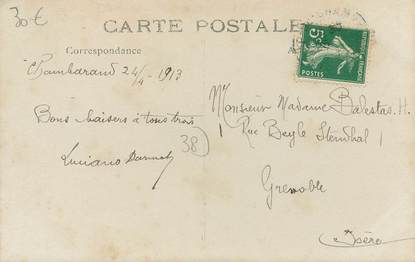 30 €
CARTE POSTALE
Correspondance
Chambarand 24/4 - 1913
Bons baisers à tous trois
38
Luciano
Monsieur Madame Balestas. H.
1 Rue Beyle Stendhal 1
Grenoble
Isère
5c
POSTES